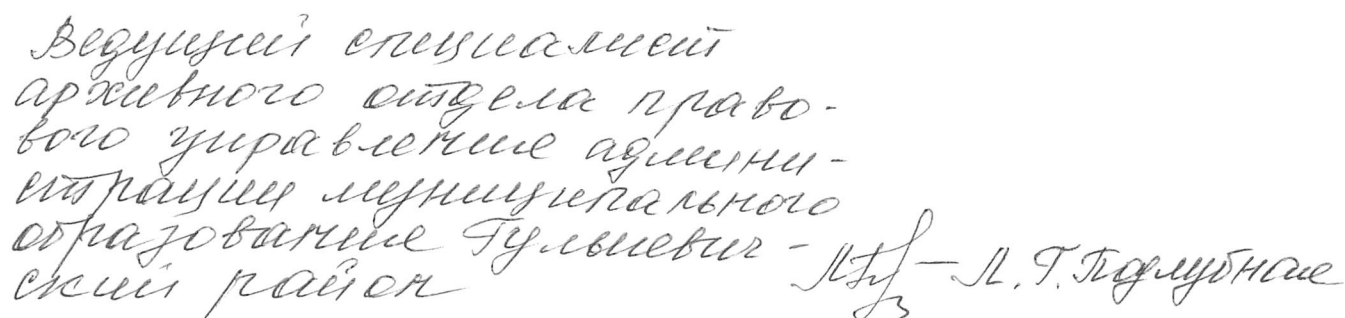 Ведущий специалист
архивного отдела право-
вого управления админи-
страции муниципального
образования Гулькевич-
ский район
Л.Г. Подлубная